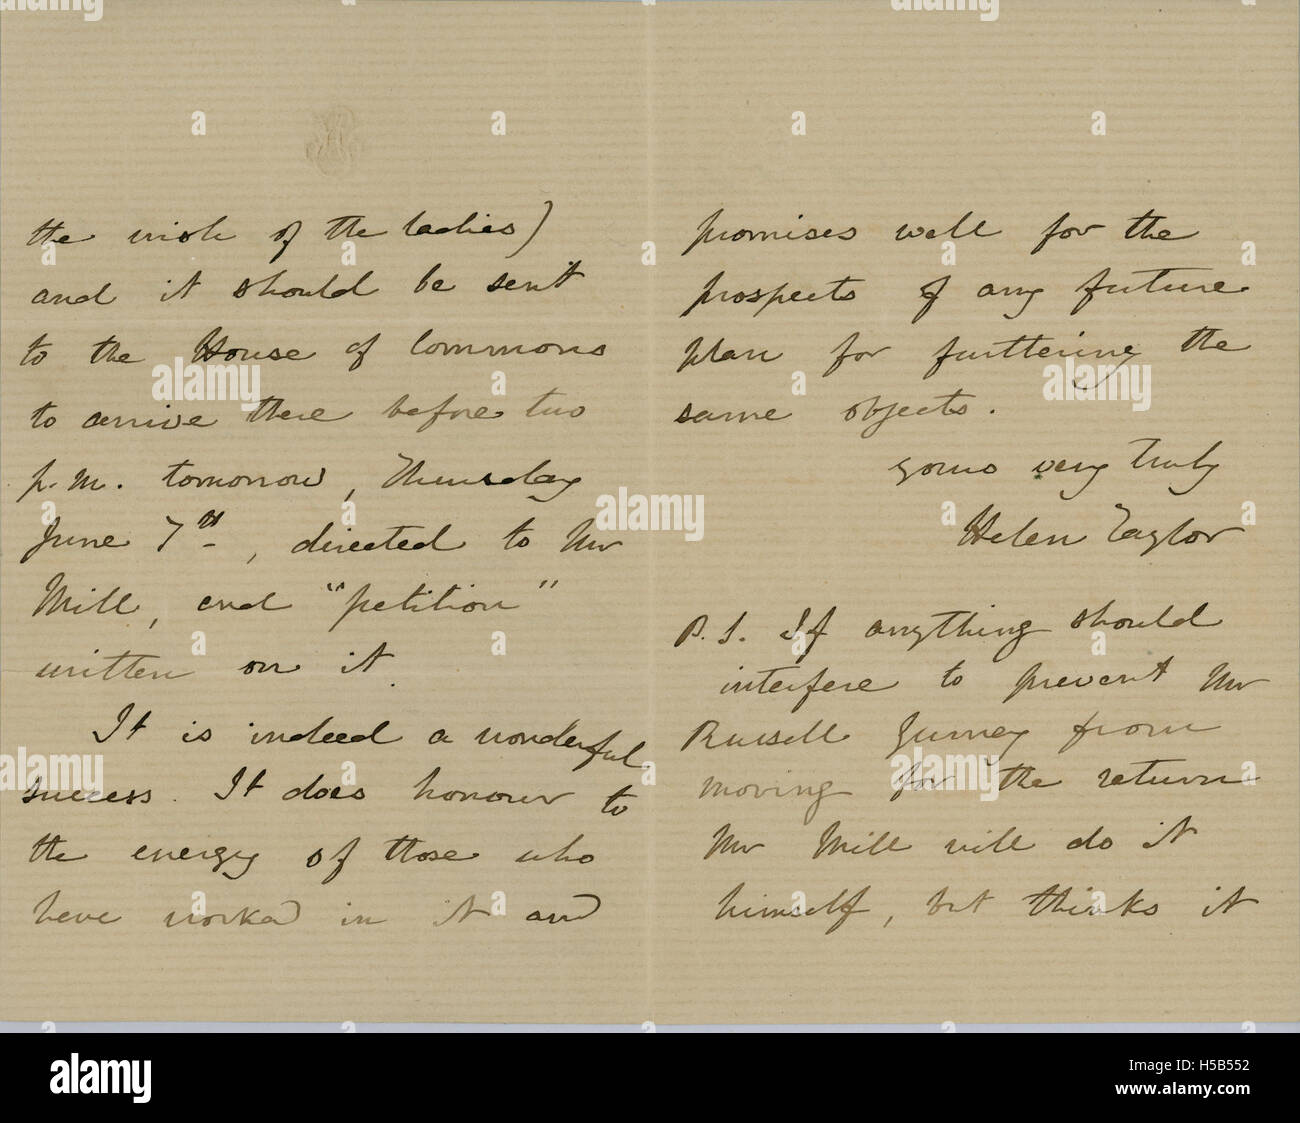 the wish of the ladies)
and it should be sent
to the House of Commons
to arrive there before two
p.m. tomorrow, Thursday
June 7th, directed to Mr
Mill, and "petition"
written on it.
It is indeed a wonderful
success. It does honour to
the energy of those who
have worked in it and
promises well for the
prospects of any future
plan for furthering the
same objects.
Yours very truly
Helen Taylor
P.S. If anything should
interfere to prevent Mr
Russell Gurney from
moving for the return
Mr Mill will do it
himself, but thinks it
alamy stock photo
H5B552
www.alamy.com